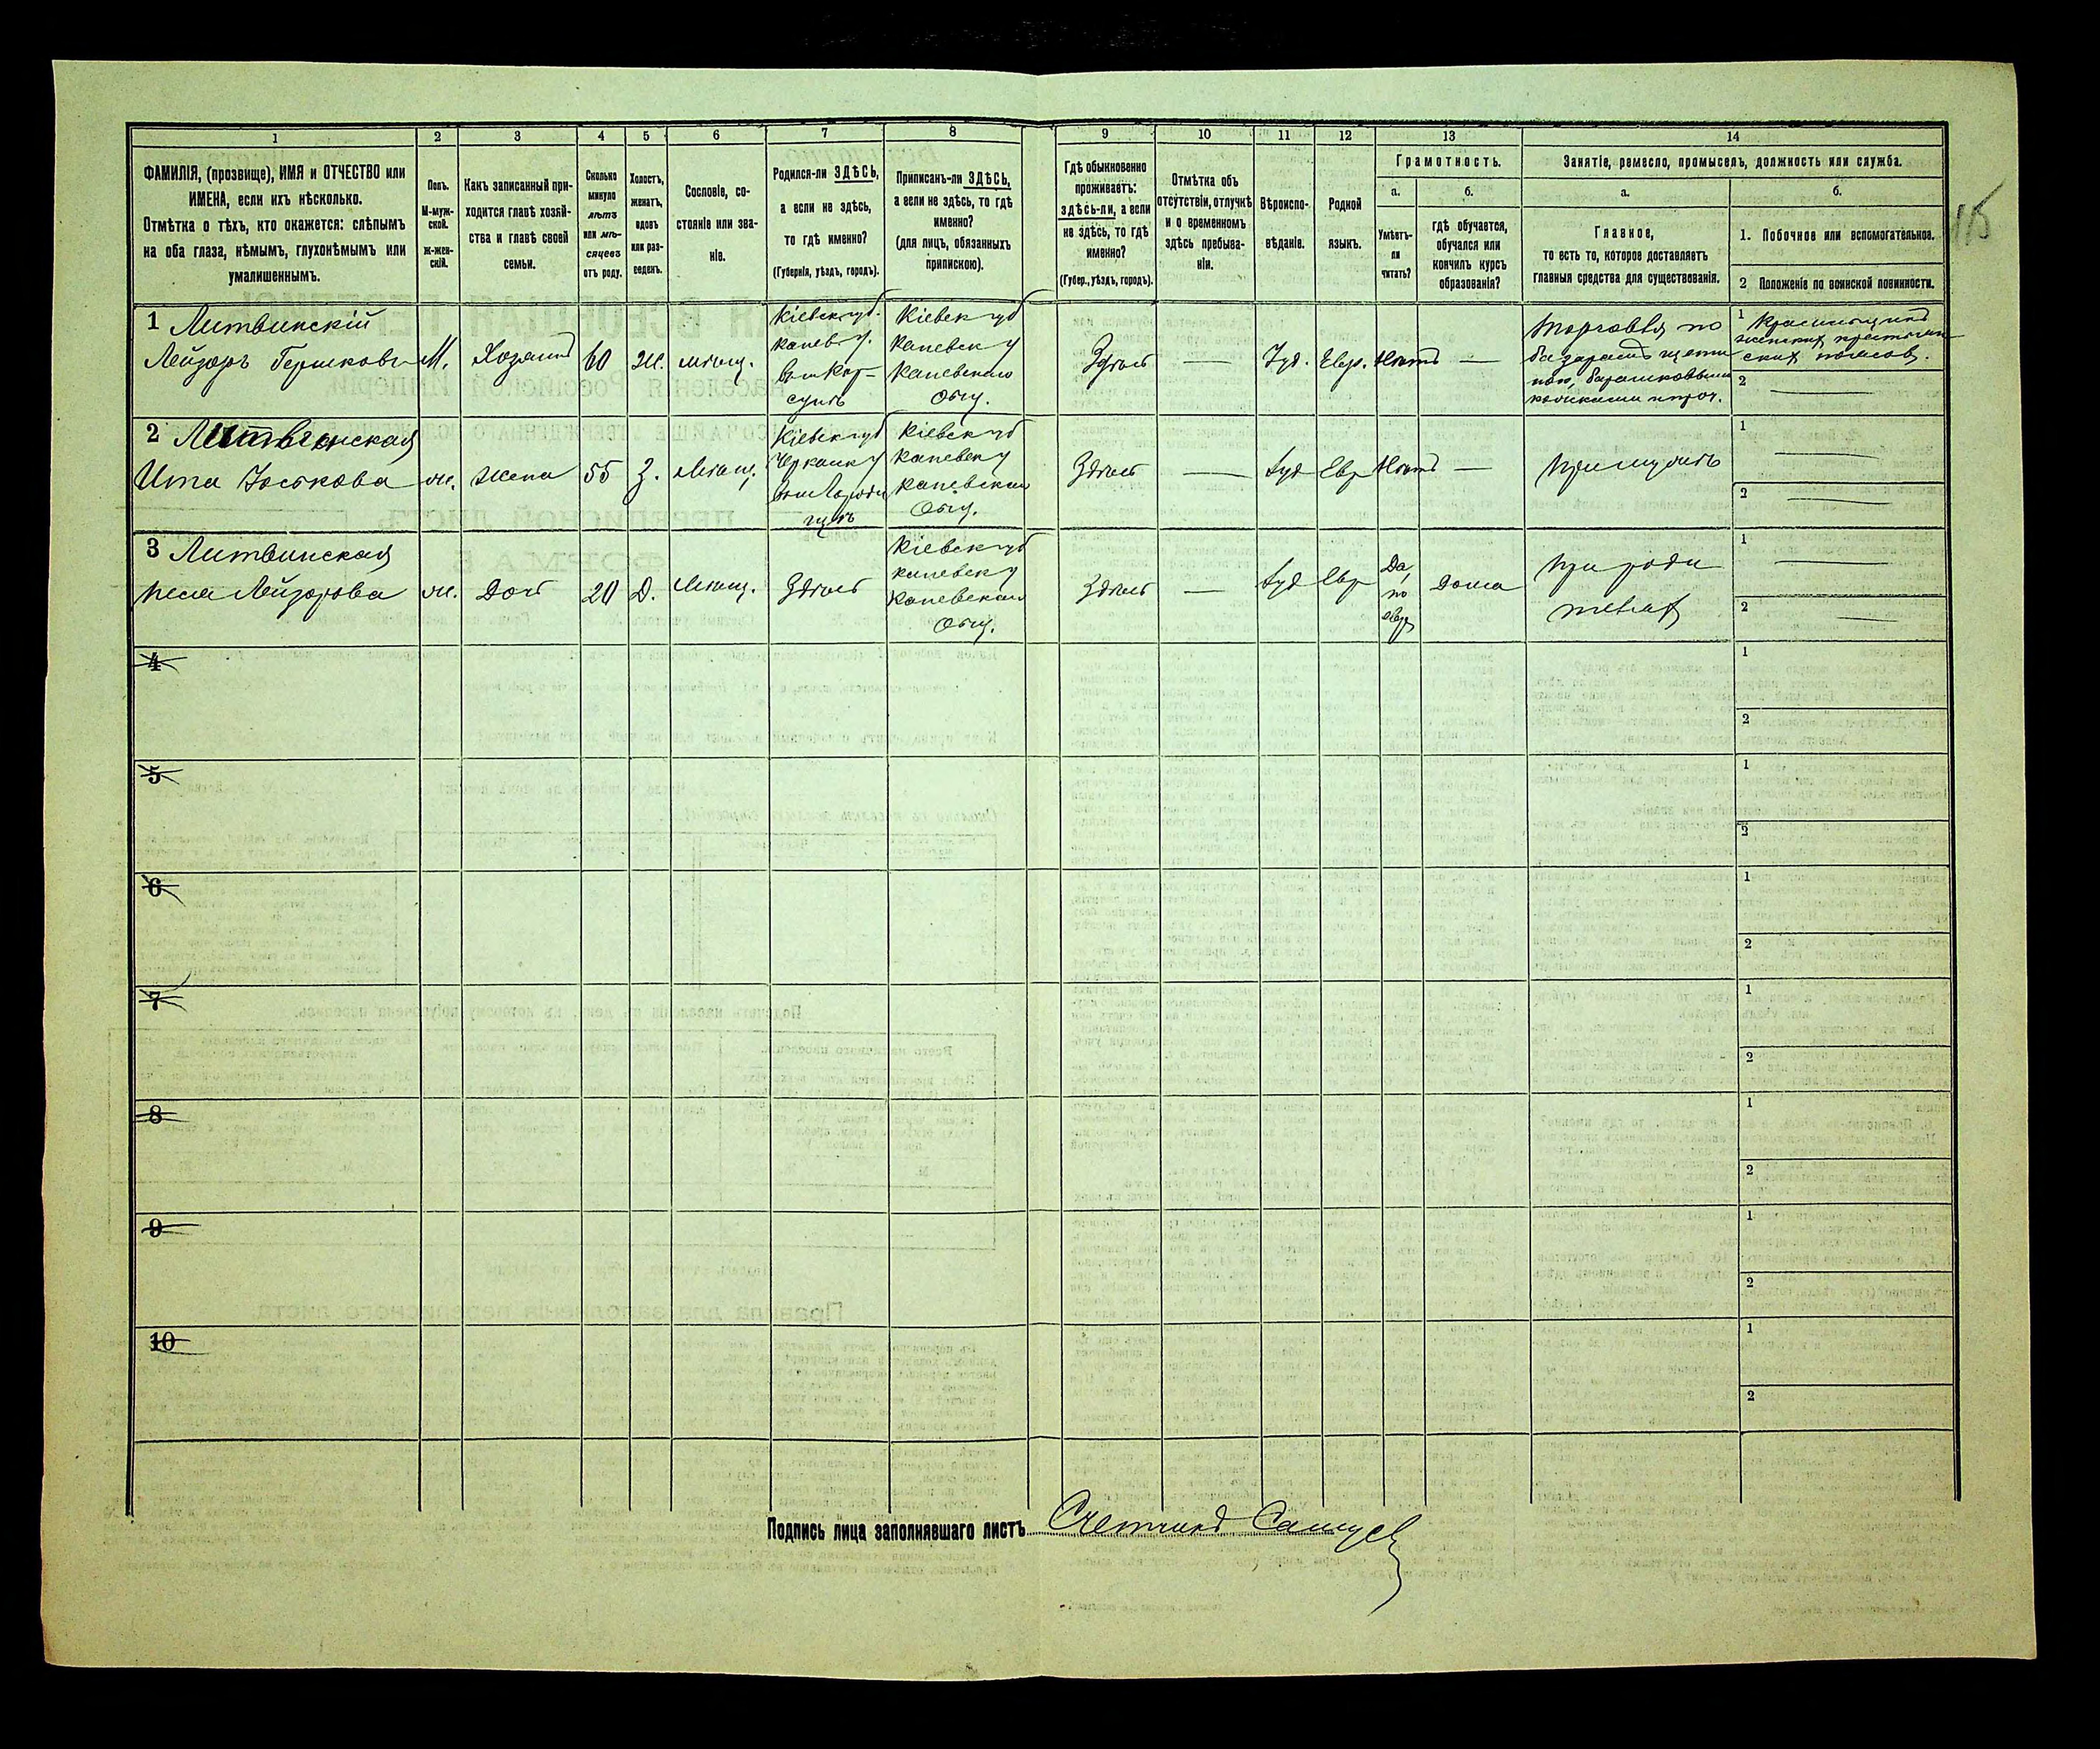 1 2 3 4 5 6 7 8 9 10 11 12 13 14
ФАМИЛІЯ, (прозвище), ИМЯ и ОТЧЕСТВО или
ИМЕНА, если ихъ нѣсколько.
Отмѣтка о тѣхъ, кто окажется: слѣпымъ
на оба глаза, нѣмымъ, глухонѣмымъ или
умалишеннымъ.
Полъ.
М-муж-
ской.
Ж-жен-
скій.
Какъ записанный при-
ходится главѣ хозяй-
ства и главѣ своей
семьи.
Сколько
минуло
лѣтъ
или мѣ-
сяцевъ
отъ роду.
Холостъ,
женатъ,
вдовъ
или раз-
веденъ.
Сословіе, со-
стояніе или зва-
ніе.
Родился-ли ЗДѢСЬ,
а если не здѣсь,
то гдѣ именно?
(Губернія, уѣздъ, городъ).
Приписанъ-ли ЗДѢСЬ,
а если не здѣсь, то гдѣ
именно?
(для лицъ, обязанныхъ
припискою).
Гдѣ обыкновенно
проживаетъ:
здѣсь-ли, а если
не здѣсь, то гдѣ
именно?
(Губер., уѣздъ, городъ).
Отмѣтка объ
отсутствіи, отлучкѣ
и о временномъ
здѣсь пребыва-
ніи.
Вѣроиспо-
вѣданіе.
Родной
языкъ.
Грамотность.
а.
Умѣетъ-
ли
читать?
б.
гдѣ обучается,
обучался или
кончилъ курсъ
образованія?
Занятіе, ремесло, промыселъ, должность или служба.
а.
Главное,
то есть то, которое доставляетъ
главныя средства для существованія.
б.
1. Побочное или вспомогательное.
2 Положеніе по воинской повинности.
115
1 Литвинскій
Лейзоръ Гершковъ
М.
Хозяинъ
60
Ж.
мѣщ.
Кіевск губ.
Канев у.
Кор-
сунь
Кіевск губ
Каневск у
Каневскаго
Общ.
Здѣсь
—
Іуд.
Евр.
Нѣтъ
—
Торговля по
базарамъ
1
женских крестьян
ских поясов.
2 —
2 Литвинская
Ита Іоськова
ж.
Жена
55
З.
Мѣщ.
Кіевск губ
Черкаск у
Кіевск губ
Каневск у
Каневскаго
Общ.
Здѣсь
—
Іуд
Евр
Нѣтъ
—
При мужѣ
1 —
2 —
3 Литвинская
Песя Лейзорова
ж.
Доч
20
Д.
Мѣщ.
Здѣсь
Кіевск губ
Каневск у
Каневскаго
Общ.
Здѣсь
—
Іуд
Евр
Да,
по
евр
Дома
При роди
телях
1 —
2 —
4
1
2
5
1
2
6
1
2
7
1
2
8
1
2
9
1
2
10
1
2
Подпись лица заполнявшаго листъ Счетчикъ